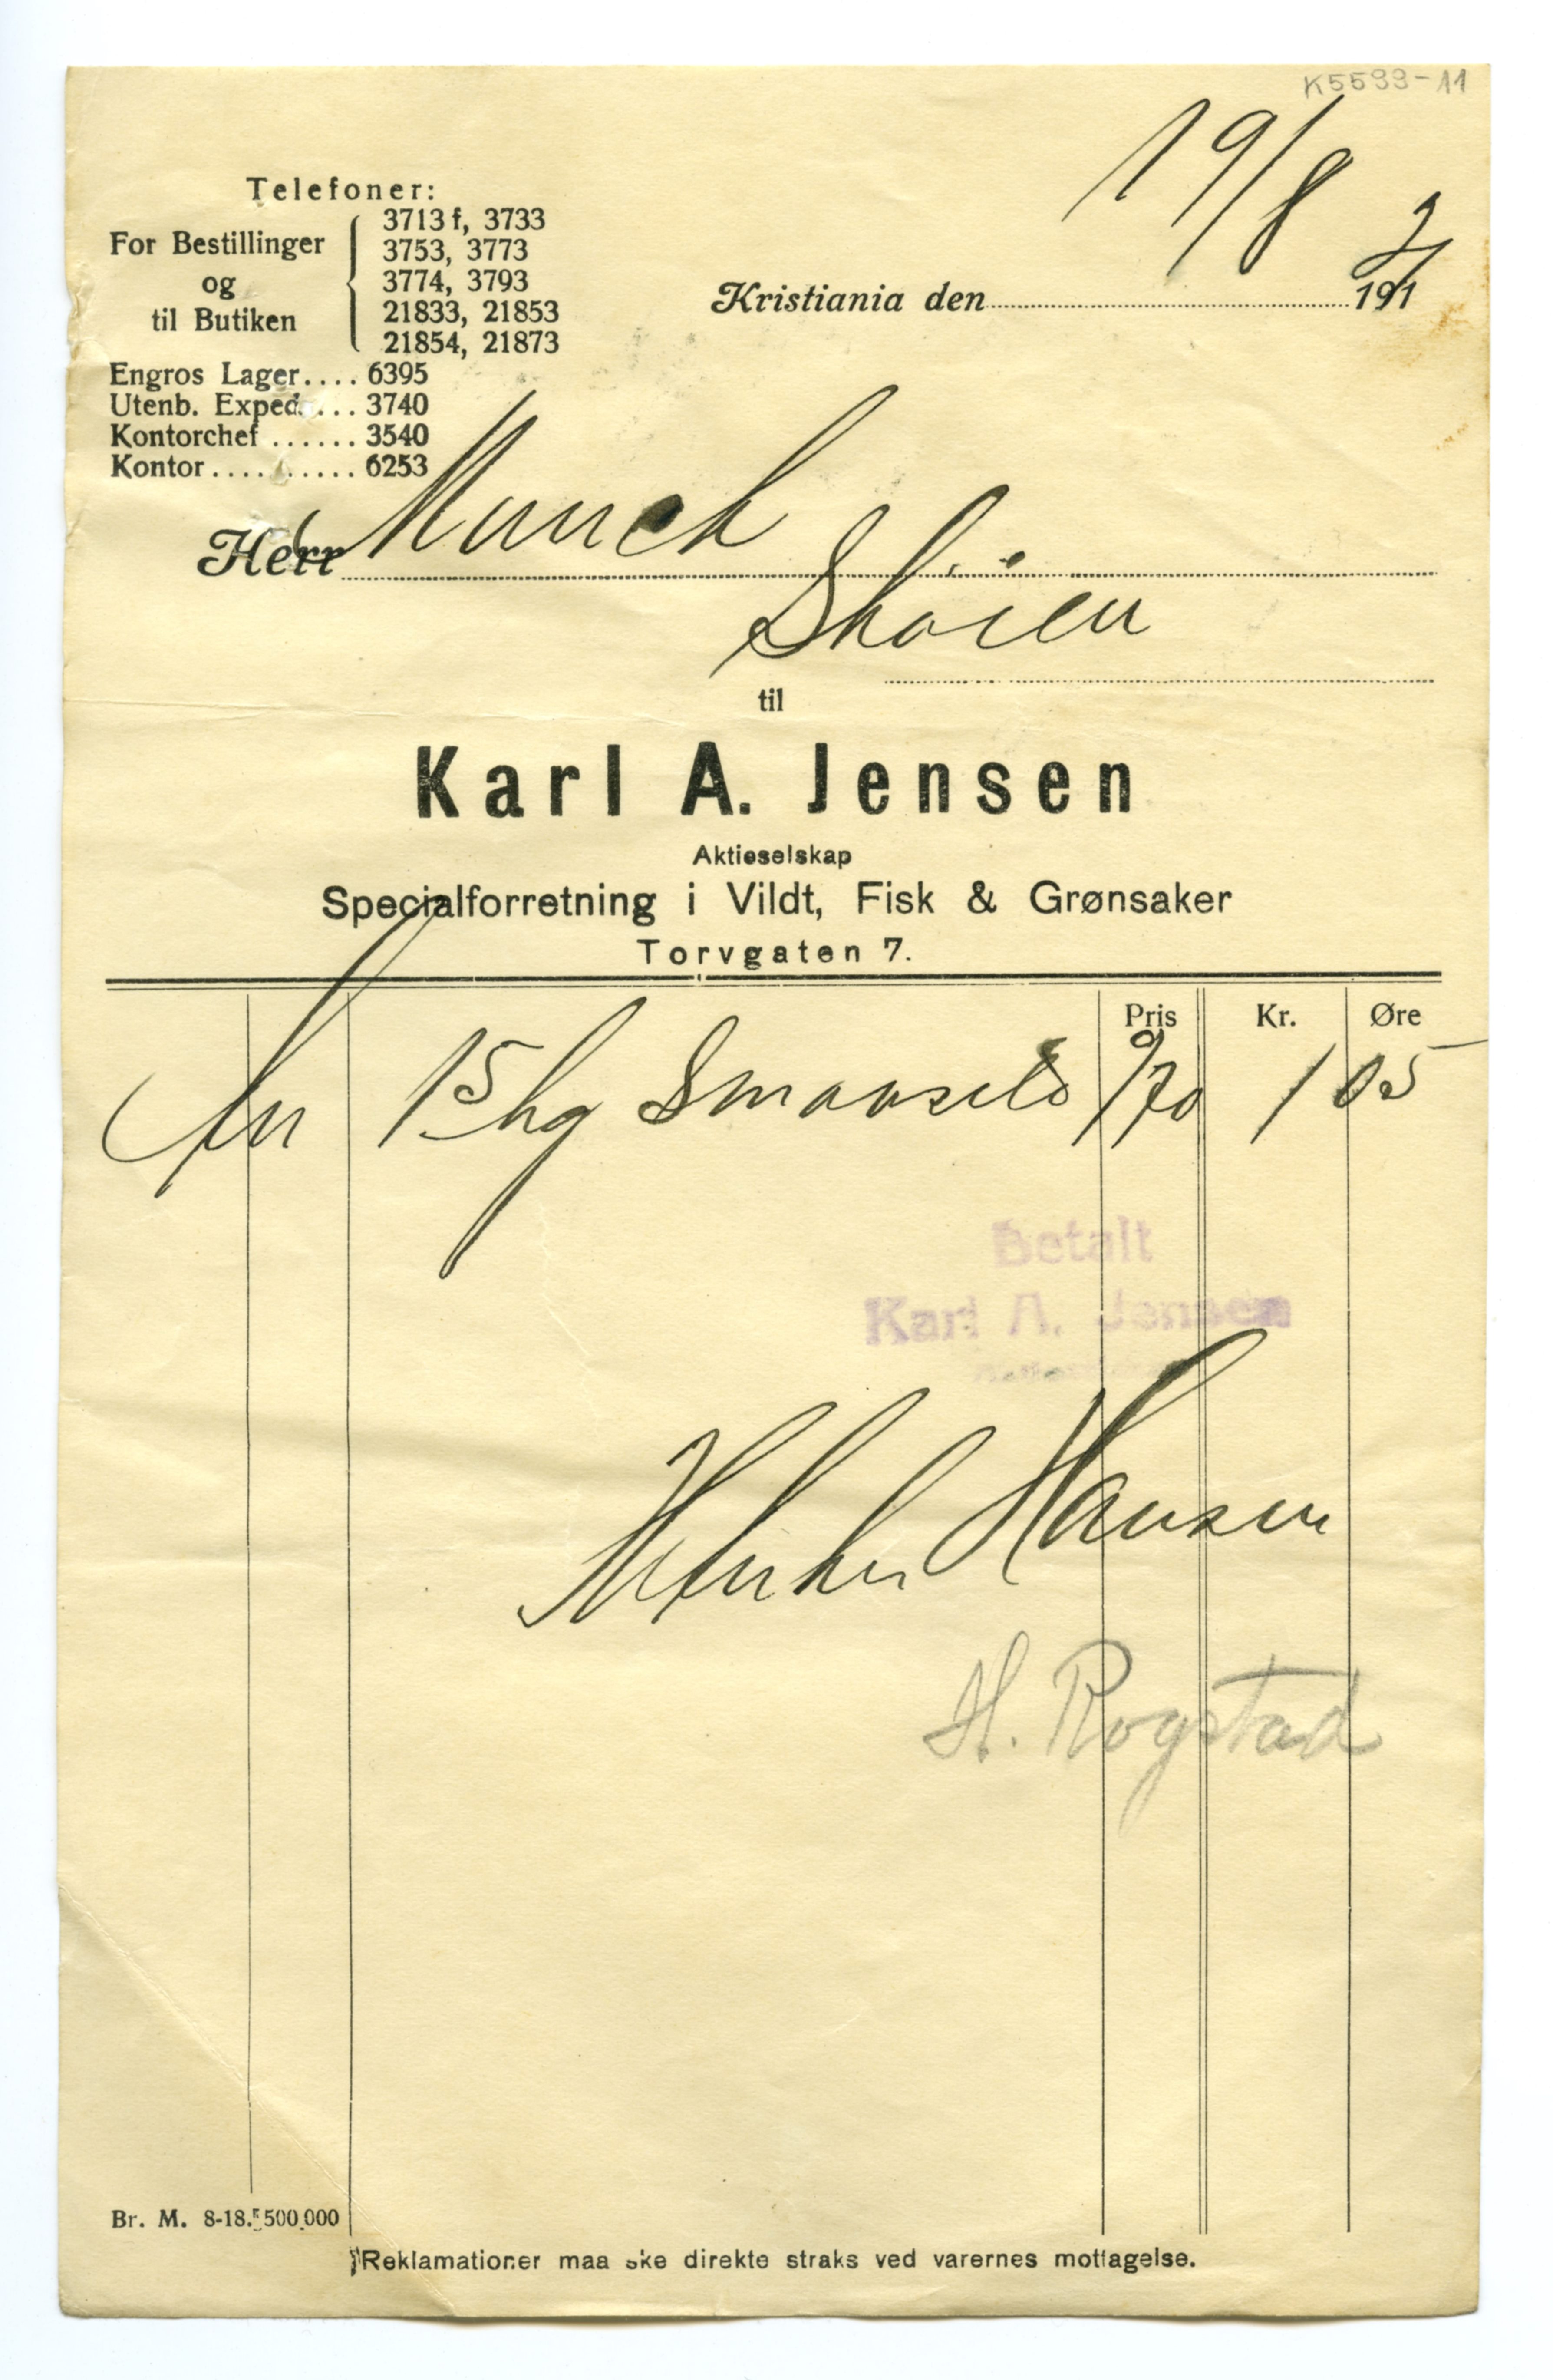 K5599-11
19/8
Telefoner:
For Bestillinger og til Butiken
3713 f, 3733
3753, 3773
3774, 3793
21833, 21853
21854, 21873
Kristiania den 191
Engros Lager.... 6395
Utenb. Exped. ... 3740
Kontorchef ...... 3540
Kontor.......... 6253
Herr Munch
Skøien
til
Karl A. Jensen
Aktieselskap
Specialforretning i Vildt, Fisk & Grønsaker
Torvgaten 7.
Pris Kr. Øre
15 hg Smaasild 70 1 05
Betalt
Karl A. Jensen
Hansen
H. Rogstad
Br. M. 8-18. 500.000
Reklamationer maa ske direkte straks ved varernes mottagelse.